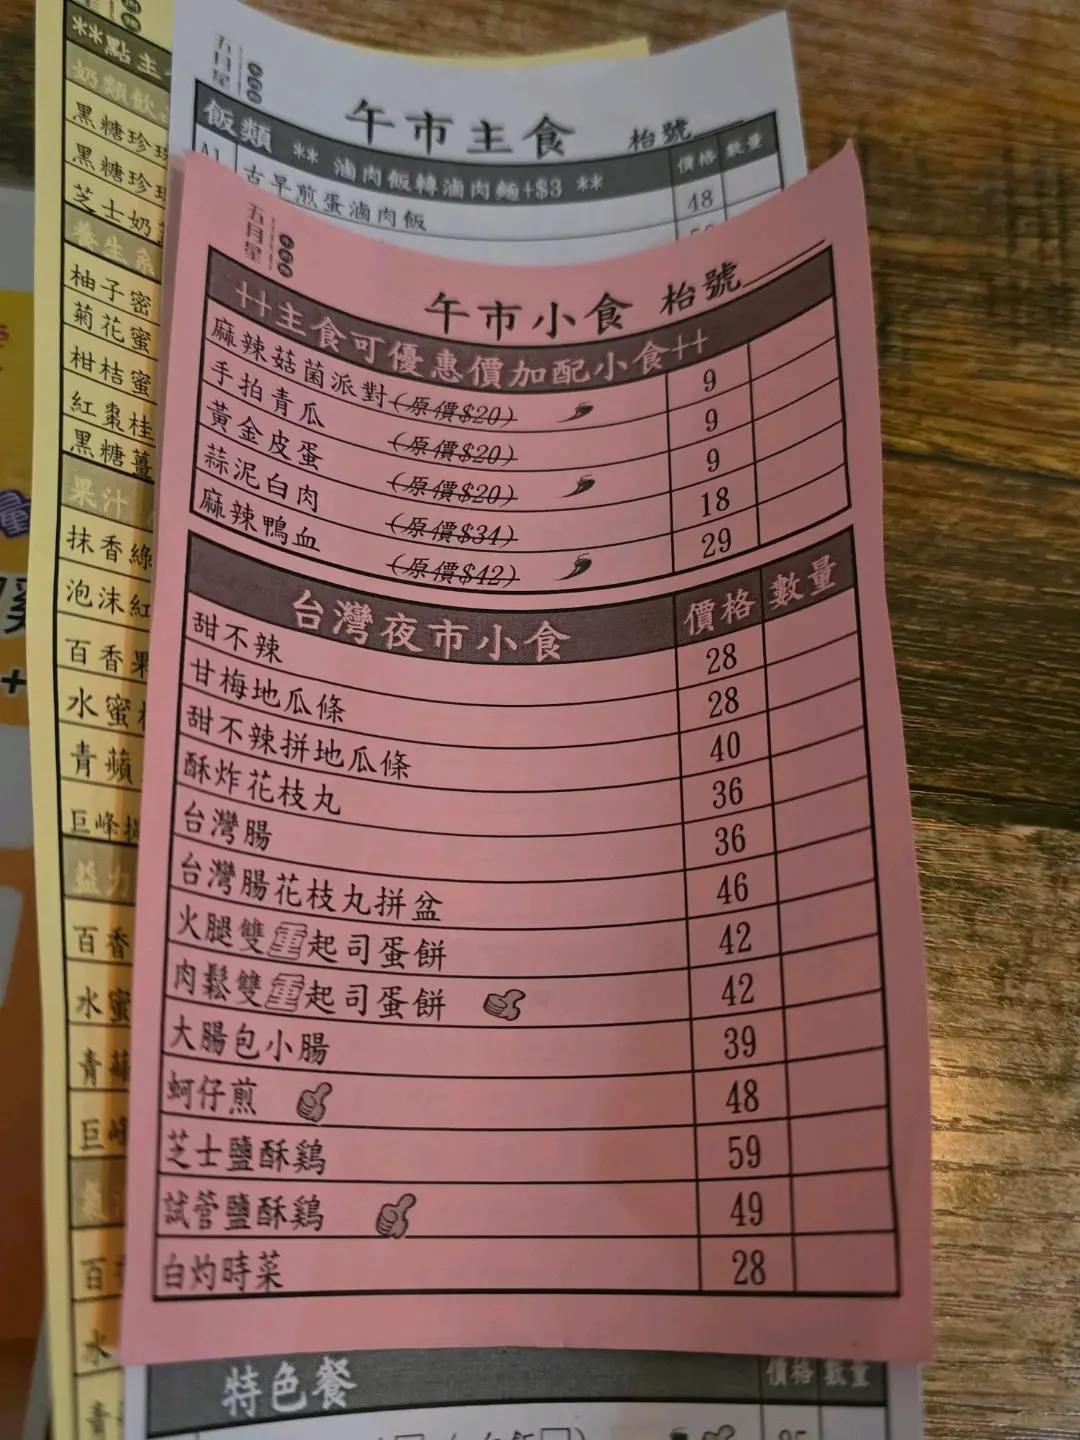 **點主
奶類飲
黑糖珍珠
黑糖珍珠
芝士奶蓋
養生系
柚子密
菊花蜜
柑桔蜜
紅棗桂
黑糖薑
果汁
抹香綠
泡沫紅
百香果
水蜜桃
青蘋
巨峰
益力
百香
水蜜
青蘋
巨峰
百
水
青
五月星
午市主食 枱號
飯類 ** 滷肉飯轉滷肉麵+$3 ** 價格 數量
A1 古早煎蛋滷肉飯 48
五月星
午市小食 枱號
++主食可優惠價加配小食++
麻辣菇菌派對(原價$20) 9
手拍青瓜 (原價$20) 9
黃金皮蛋 (原價$20) 9
蒜泥白肉 (原價$34) 18
麻辣鴨血 (原價$42) 29
台灣夜市小食 價格 數量
甜不辣 28
甘梅地瓜條 28
甜不辣拼地瓜條 40
酥炸花枝丸 36
台灣腸 36
台灣腸花枝丸拼盆 46
火腿雙重起司蛋餅 42
肉鬆雙重起司蛋餅 42
大腸包小腸 39
蚵仔煎 48
芝士鹽酥鷄 59
試管鹽酥鷄 49
白灼時菜 28
特色餐 價格 數量